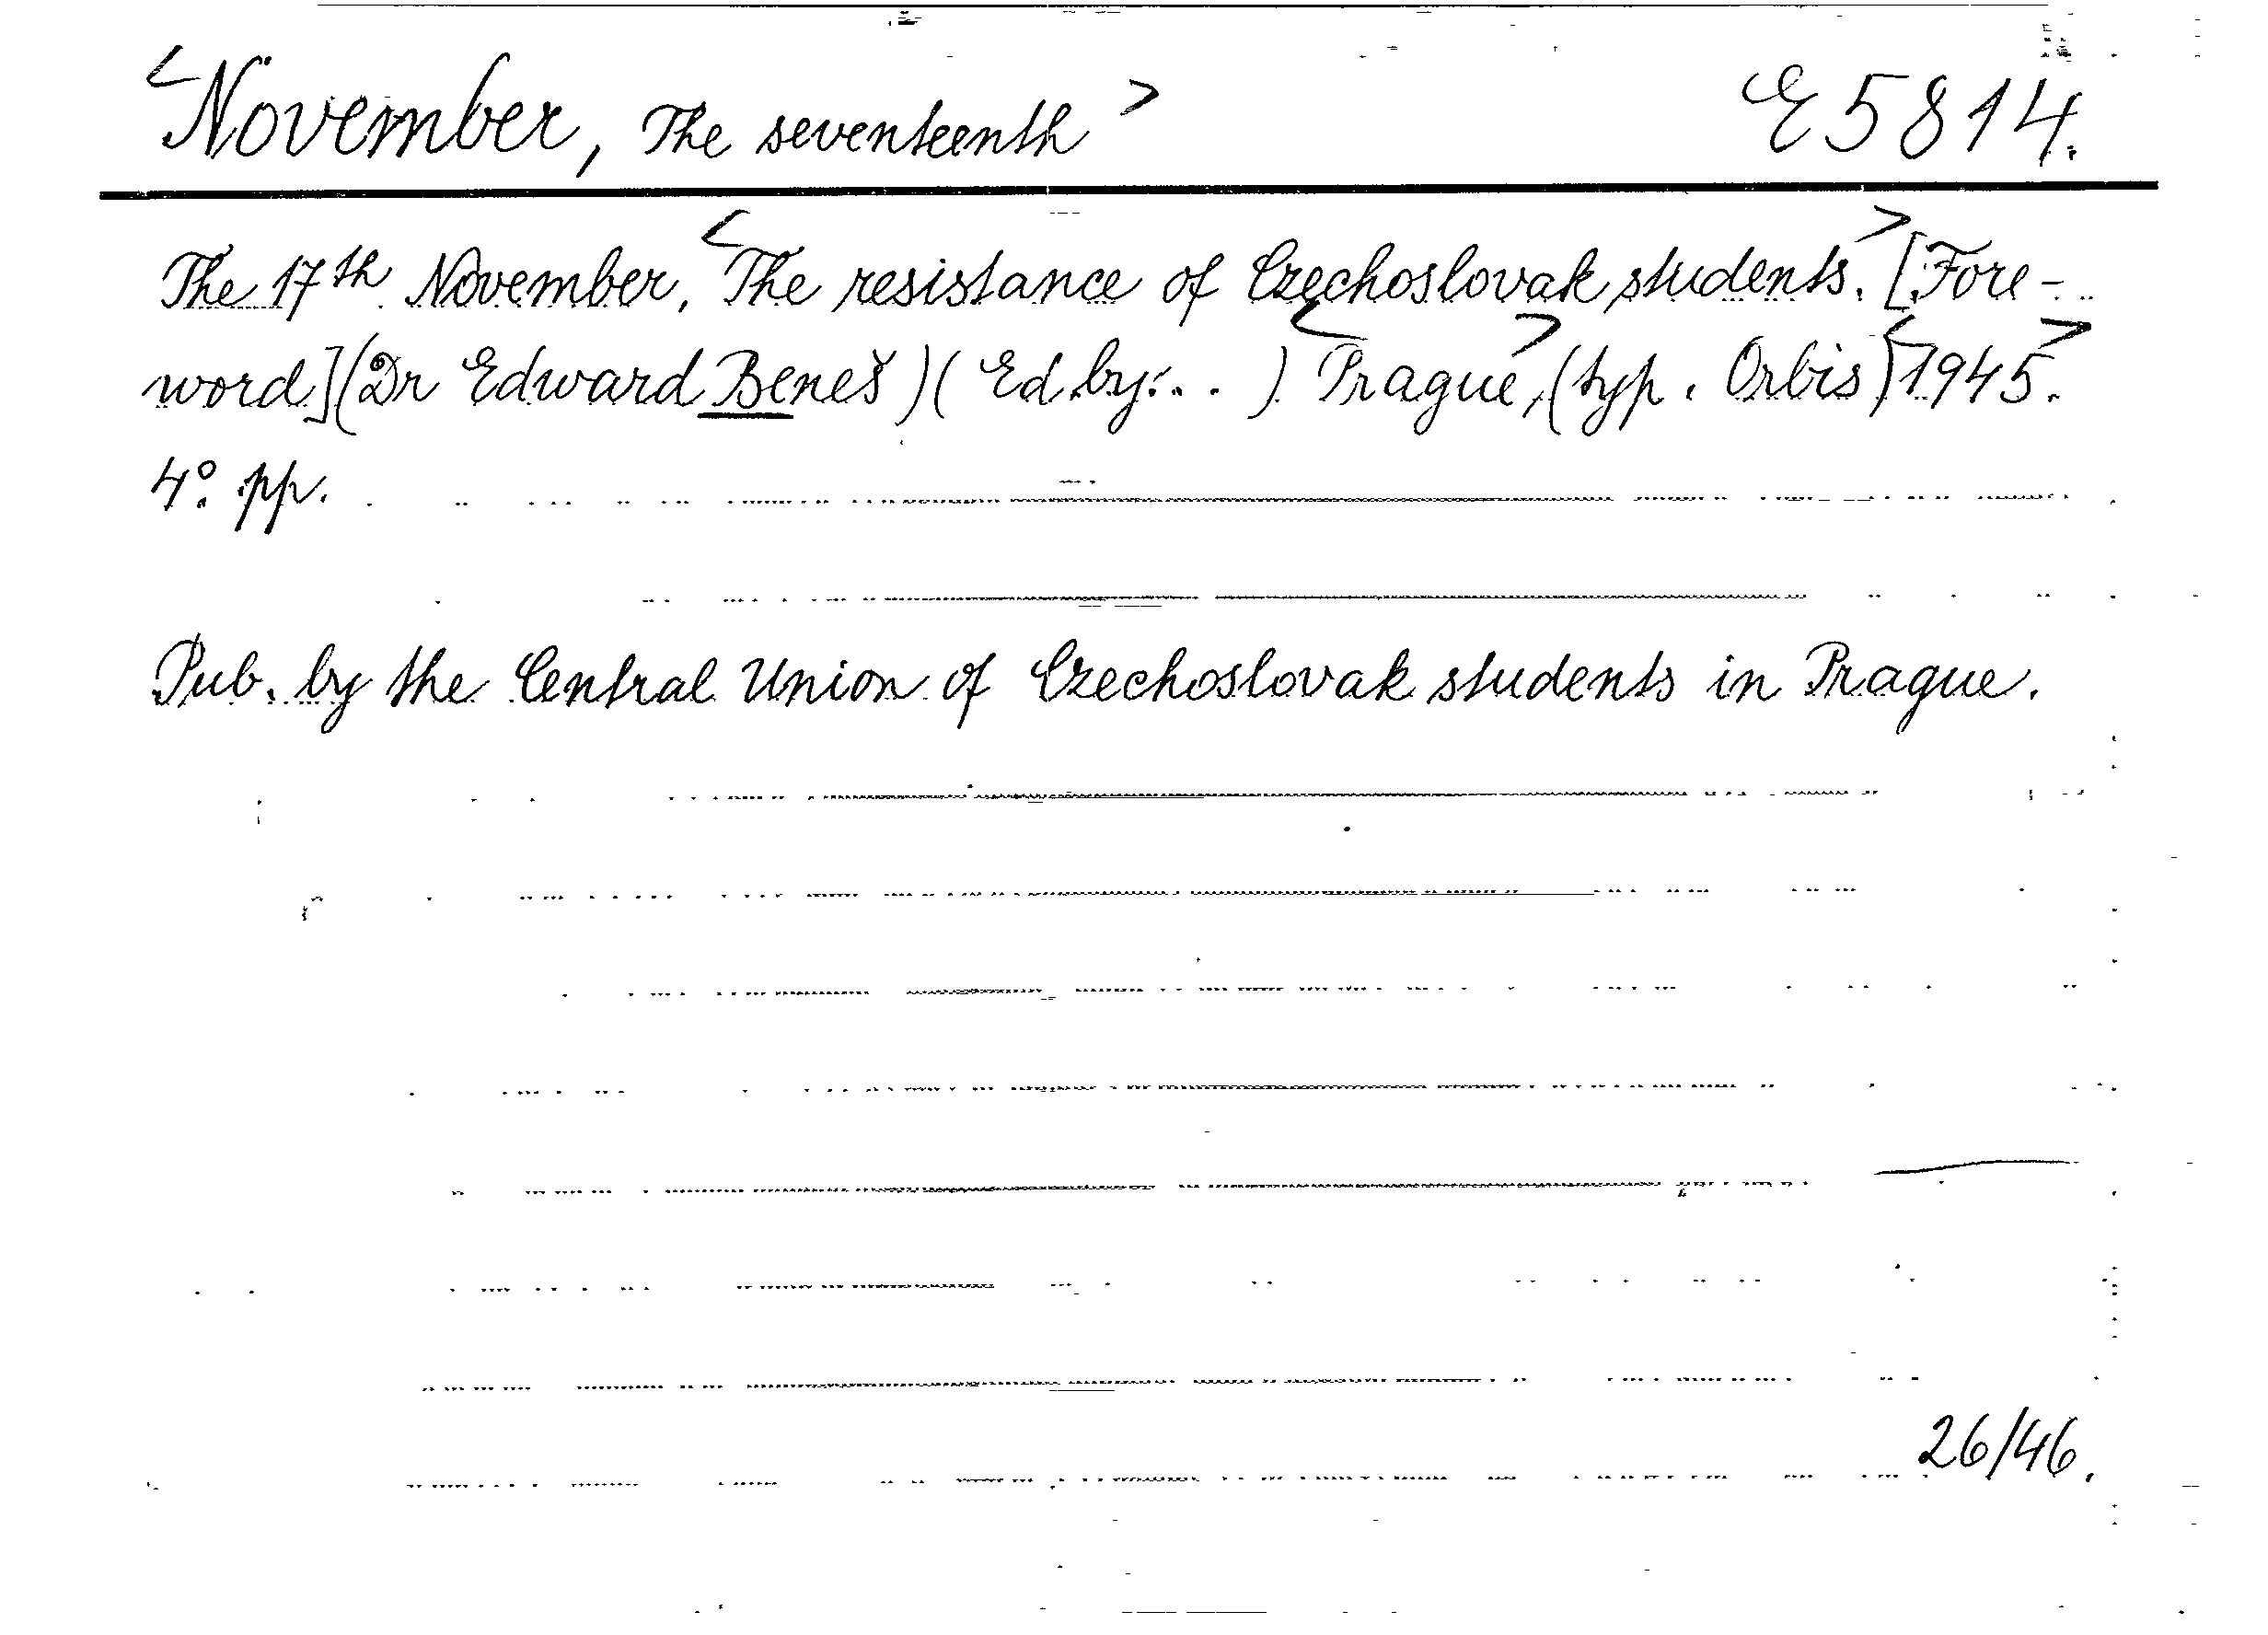 <November, The seventeenth> E 5814.
The 17th November. <The resistance of Czechoslovak students.> [Fore-
word] (Dr Edward Beneš) (Ed. by: . . ) <Prague>, (typ. Orbis) <1945>.
4°. pp.
Pub. by the Central Union of Czechoslovak students in Prague.
26/46.